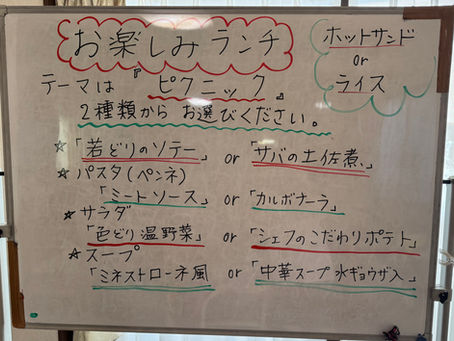 お楽しみランチ
ホットサンド
or
ライス
テーマは『ピクニック』
2種類からお選びください。
☆「若どりのソテー」 or 「サバの土佐煮」
☆パスタ(ペンネ)
「ミートソース」 or 「カルボナーラ」
☆サラダ
「色どり温野菜」 or 「シェフのこだわりポテト」
☆スープ
「ミネストローネ風 or 「中華スープ 水ギョウザ入」